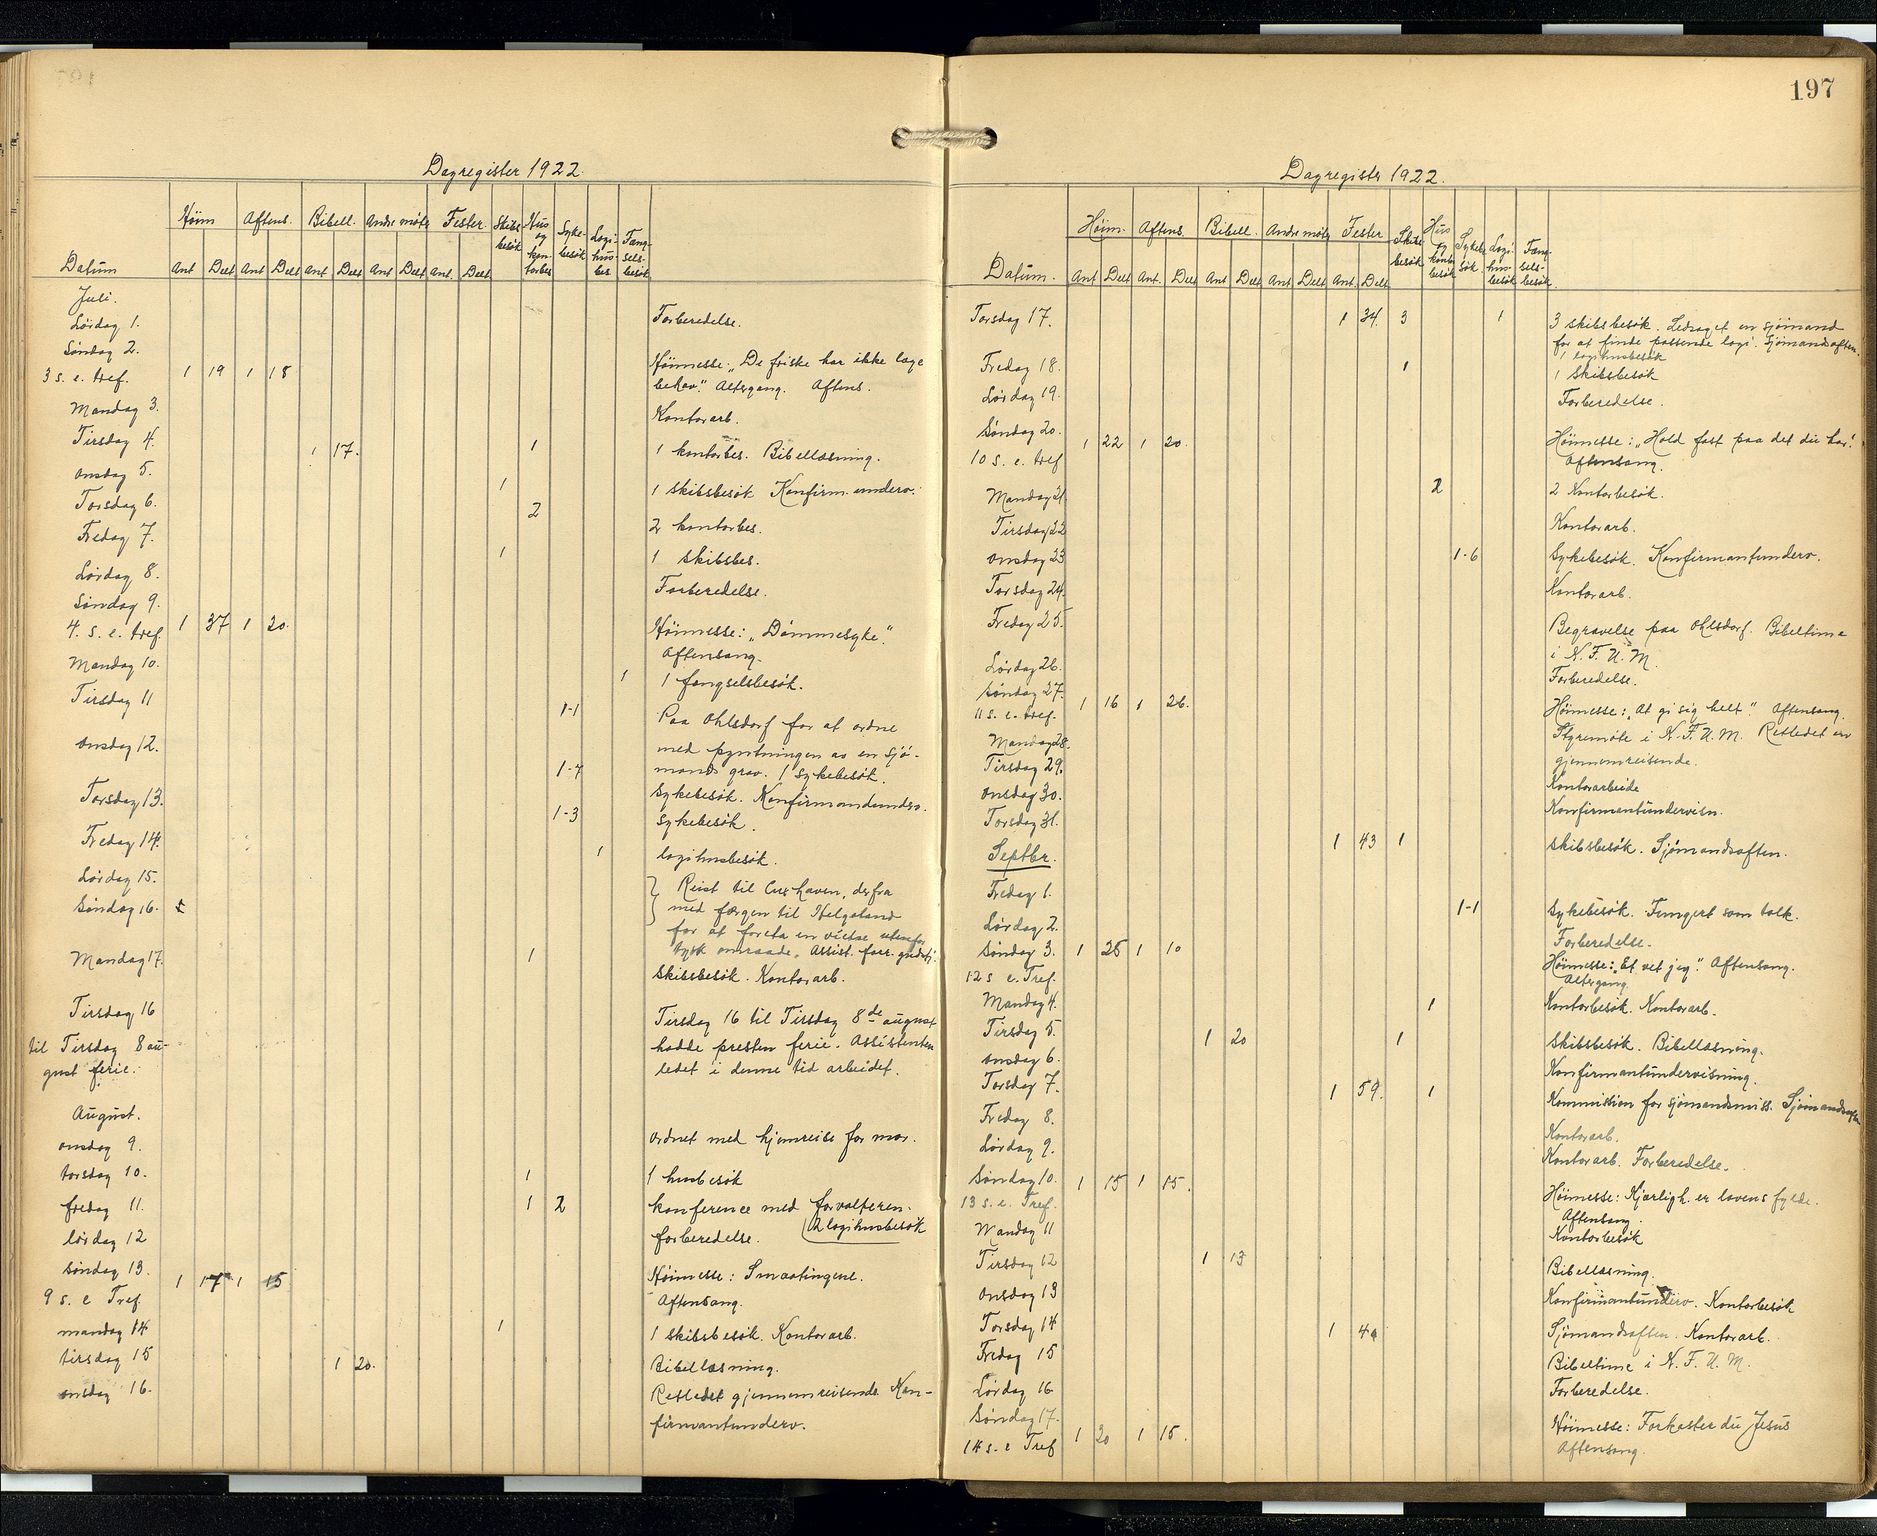 Dagregister 1922.
Höim Aftens. Bibell. Andre möter Fester Skibsbesök Hus og kontorbes Sykebesök Logihusbes Fængselsbesök
Datum Ant Delt Ant Delt Ant Delt Ant Delt Ant. Delt
Juli.
Lördag 1. Forberedelse.
Söndag 2.
3 s. e. tref. 1 19 1 18 Höimesse „De friske har ikke læge
behov.” Altergang. Aftens.
Mandag 3. Kontorarb.
Tirsdag 4. 1 17. 1 1 kontorbes. Bibellæsning.
Onsdag 5. 1 1 skibsbesök Konfirm. underv.
Torsdag 6. 2 2 kontorbes.
Fredag 7. 1 1 skibsbes.
Lördag 8. Forberedelse.
Söndag 9.
4. s. e. tref. 1 37 1 20. Höimesse: „Dömmesyke.”
Aftensang.
Mandag 10. 1 1 fængselsbesök.
Tirsdag 11 1-1 Paa Ohlsdorf for at ordne
med pyntningen av en sjö-
mands grav. 1 sykebesök.
Onsdag 12. 1-7 Sykebesök. Konfirmandunderv.
Torsdag 13. 1-3 Sykebesök.
Fredag 14. 1 logihusbesök.
Lördag 15. Reist til Cuxhaven, derfra
Söndag 16. med færgen til Helgoland
for at foreta en vielse utenfor
tysk omraade. Assist. forr. gudstj.
Mandag 17. 1 Skibsbesök. Kontorarb.
Tirsdag 16 Tirsdag 16 til Tirsdag 8de august
til Tirsdag 8 au- hadde presten ferie. Assistenten
gust ferie. ledet i denne tid arbeidet.
August.
Onsdag 9. Ordnet med hjemreise for mor.
torsdag 10. 1 1 husbesök
fredag 11. 1 2 konference med forvalteren.
2 logihusbesök
lördag 12 forberedelse.
söndag 13. 1 17 1 15 Höimesse: Smaatingene.
9 s. e Tref. Aftensang.
mandag 14 1 1 skibsbesök. Kontorarb.
tirsdag 15 1 20. Bibellæsning.
onsdag 16. Retledet gjennemreisende Kon-
firmantunderv.
197
Dagregister 1922.
Höim. Aftens. Bibell. Andre möter Fester Skibsbesök Hus og kontorbesök Sykebesök Logihusbesök Fængselsbesök.
Datum. Ant Delt Ant. Delt Ant Delt Ant Delt Ant. Delt
Torsdag 17. 1 34. 3 1 3 skibsbesök. Ledsaget en sjömand
for at finde passende logi. Sjömandsaften.
1 logihusbesök
Fredag 18. 1 1 skibsbesök
Lördag 19. Forberedelse.
Söndag 20. 1 22 1 20. Höimesse: „Hold fast paa det du har!
10 s. e. tref Aftensang.
Mandag 21. 2 2 Kontorbesök.
Tirsdag 22 Kontorarb.
Onsdag 23 1-6 Sykebesök. Konfirmantunderv.
Torsdag 24. Kontorarb.
Fredag 25. Begravelse paa Ohlsdorf. Bibeltime
i K. F. U. M.
Lördag 26. Forberedelse.
Söndag 27.
11 s. e. tref. 1 16 1 26. Höimesse: „At gi sig helt.” Aftensang.
Mandag 28. Styremöte i K. F. U. M. Retledet en
gjennemreisende.
Tirsdag 29. Kontorarbeide
Onsdag 30. Konfirmantundervisn.
Torsdag 31. 1 43 1 Skibsbesök. Sjömandsaften.
Septbr.
Fredag 1. 1-1 Sykebesök. Fungert som tolk.
Lördag 2. Forberedelse.
Söndag 3. 1 25 1 10 Höimesse: „Et vet jeg.” Aftensang.
12 s e. Tref. Altergang.
Mandag 4. 1 Kontorbesök. Kontorarb.
Tirsdag 5. 1 20 1 Skibsbesök. Bibellæsning.
Onsdag 6. Konfirmantundervisning.
Torsdag 7. 1 59. 1 Kommission for sjömandsmiss. Sjömandsaften
Fredag 8. Kontorarb.
Lördag 9. Kontorarb. Forberedelse.
Söndag 10. 1 15 1 15. Höimesse: Kjærligh. er lovens fylde.
13 s. e. Tref. Aftensang.
Mandag 11 Kontorbesök
Tirsdag 12 1 13 Bibellæsning.
Onsdag 13 Konfirmantunderv. Kontorbesök
Torsdag 14 1 Sjömandsaften. Kontorarb.
Fredag 15 Bibeltime i K. F. U. M.
Lördag 16 Forberedelse.
Söndag 17. 1 20 1 15. Höimesse: Forkaster du Jesus
14 s. e Tref Aftensang.